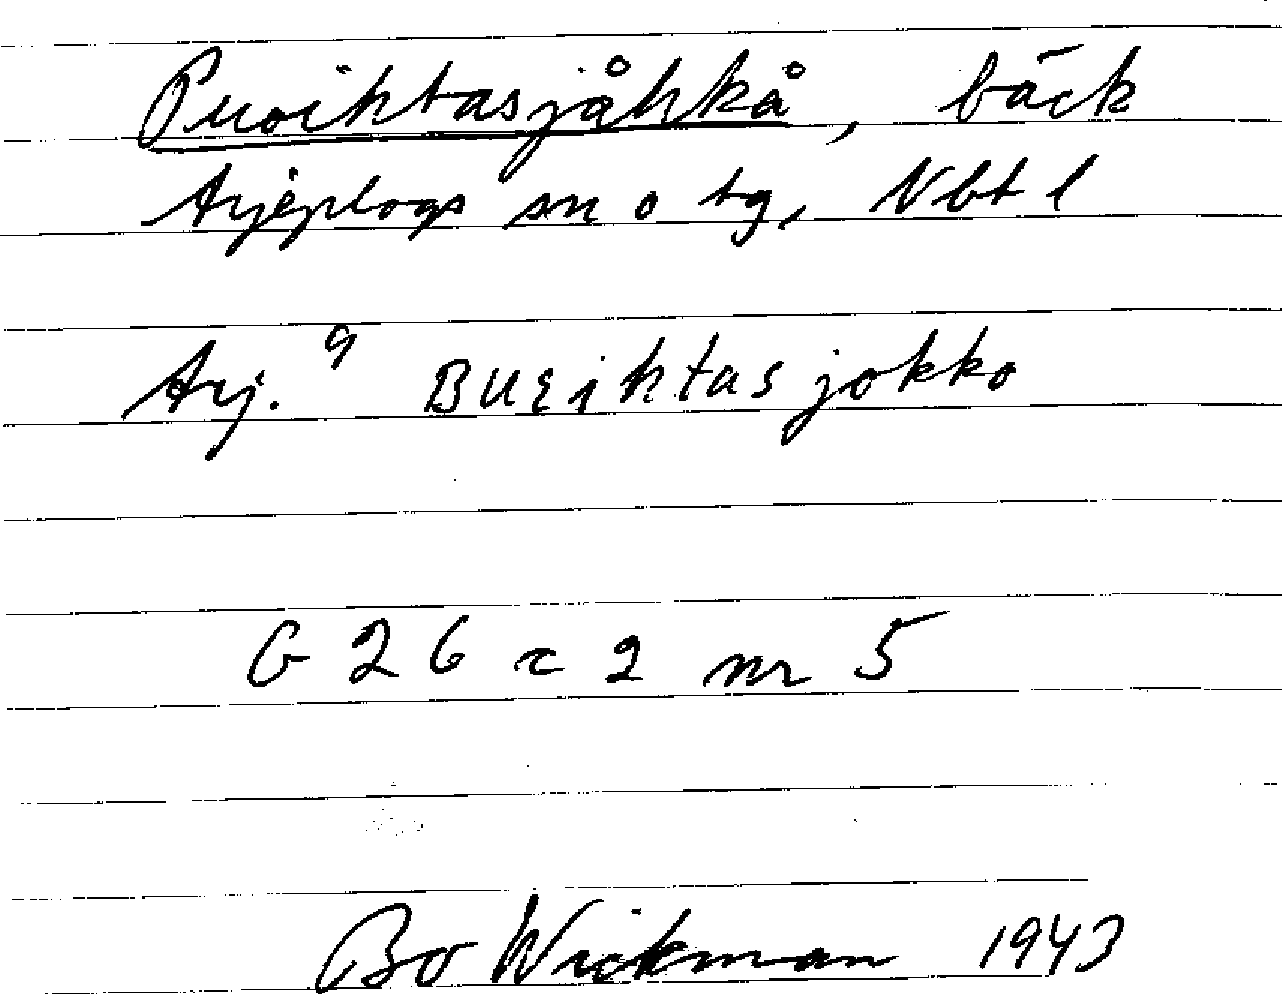 Puoihtasjåhkå, bäck
Arjeplogs sn o tg, Nbt l
Arj. 9 BUƐihtas jokko
G 26 c 2 nr 5
Bo Wickman 1943